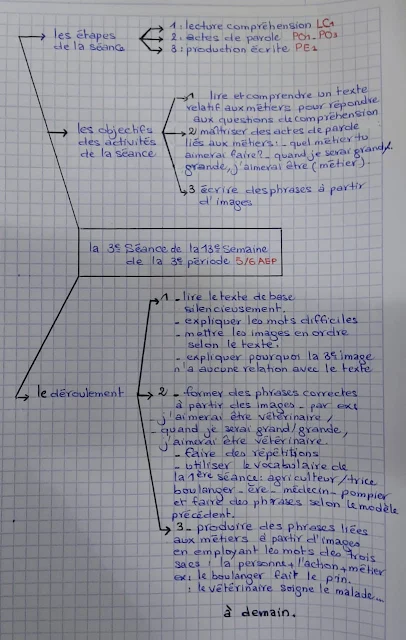 les étapes de la séance
1: lecture compréhension LC1
2: actes de parole PO1_PO3
3: production écrite PE1
les objectifs des activités de la séance
1 lire et comprendre un texte
relatif aux métiers pour répondre
aux questions de compréhension
2 maîtriser des actes de parole
liés aux métiers: _ quel métier tu
aimerai faire? _ quand je serai grand/
grande, j'aimerai être (métier).
3 écrire des phrases à partir
d'images
la 3e Séance de la 13e Semaine
de la 3e période 5/6 AEP
le déroulement
1 _ lire le texte de base
silencieusement.
_ expliquer les mots difficiles
_ mettre les images en ordre
selon le texte.
_ expliquer pourquoi la 3e image
n'a aucune relation avec le texte
2 _ former des phrases correctes
à partir des images _ par ex:
_ j'aimerai être vétérinaire /
_ quand je serai grand/grande,
j'aimerai être vétérinaire.
_ faire des répétitions
_ utiliser le vocabulaire de
la 1ère séance: agriculteur/trice
boulanger _ ère _ médecin _ pompier
et faire des phrases selon le modèle
précédent.
3 _ produire des phrases liées
aux métiers à partir d'images
en employant les mots des trois
sacs: la personne + l'action + métier
ex: le boulanger fait le pin.
: le vétérinaire soigne le malade...
à demain.